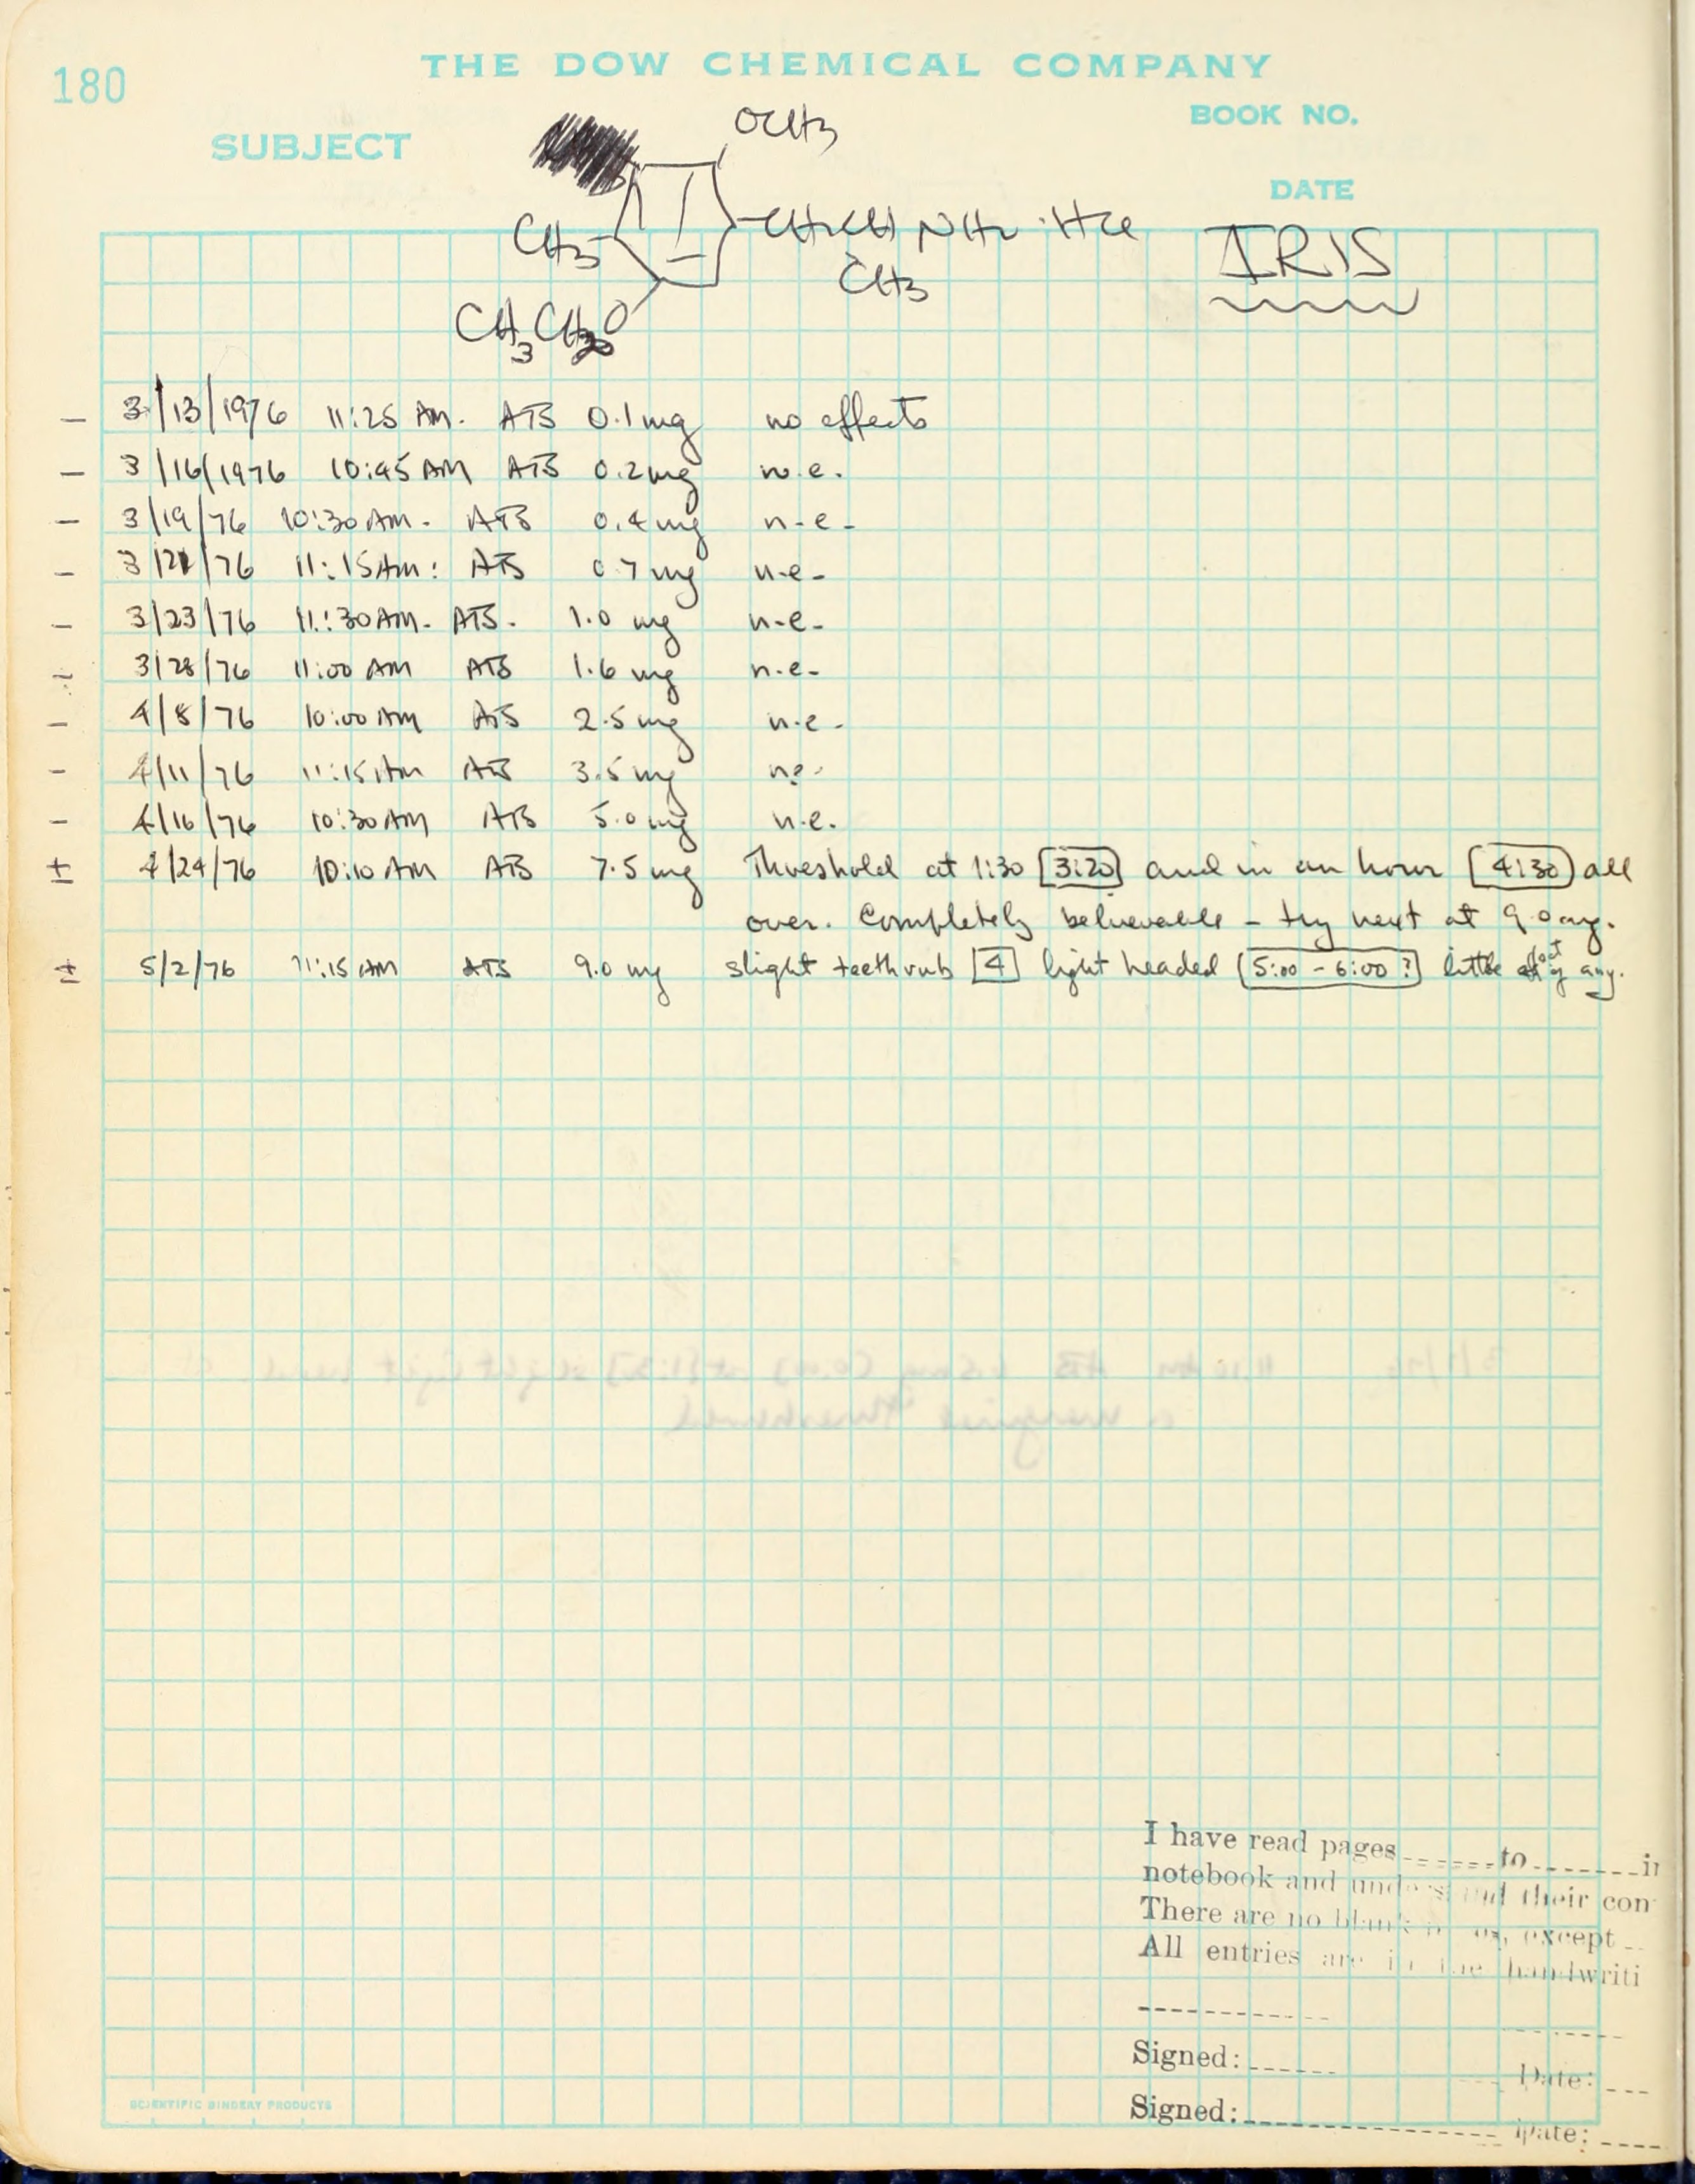 180
THE DOW CHEMICAL COMPANY
SUBJECT
BOOK NO.
DATE
OCH3
CH3
CH2CH NH2 ·HCl
CH3
CH3CH2O
IRIS
– 3/13/1976 11:25 AM. ATS 0.1 mg no effects
– 3/16/1976 10:45 AM ATS 0.2 mg n.e.
– 3/19/76 10:30 AM. ATS 0.4 mg n.e.
– 3/21/76 11:15 AM: ATS 0.7 mg n.e.
– 3/23/76 11:30 AM. ATS. 1.0 mg n.e.
– 3/28/76 11:00 AM ATS 1.6 mg n.e.
– 4/8/76 10:00 AM ATS 2.5 mg n.e.
– 4/11/76 11:15 AM ATS 3.5 mg ne.
– 4/16/76 10:30 AM ATS 5.0 mg n.e.
± 4/24/76 10:10 AM ATS 7.5 mg Threshold at 1:30 [3:20] and in an hour [4:30] all
over. Completely believable – try next at 9.0 mg.
± 5/2/76 11:15 AM ATS 9.0 mg slight teeth rub [4] light headed [5:00 – 6:00 ?] little if any.
I have read pages to
notebook and understand their con
There are no blank except
All entries are in the handwriti
Signed: Date:
Signed: Date:
SCIENTIFIC BINDERY PRODUCTS